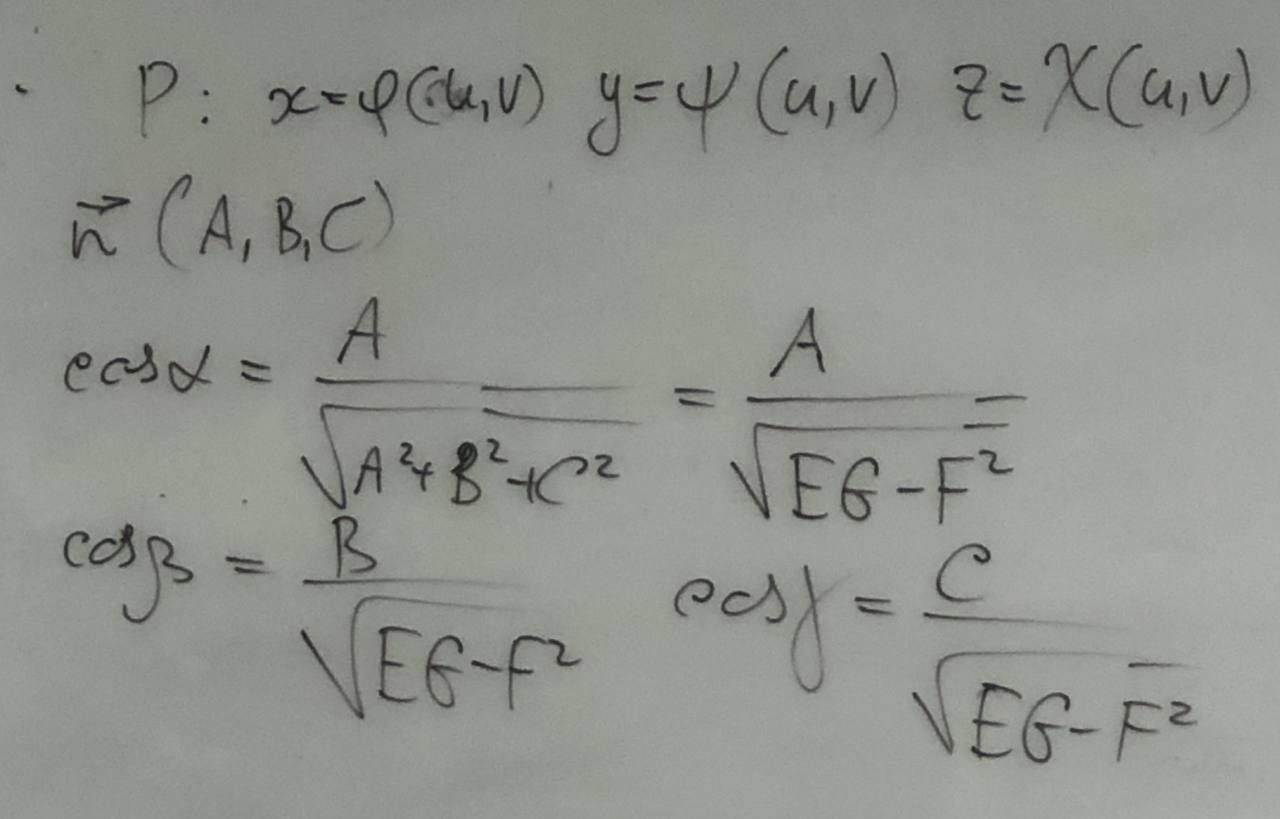 P: x=φ(u,v) y=ψ(u,v) z=χ(u,v)
n⃗ (A,B,C)
cosα = A/√(A²+B²+C²) = A/√(EG-F²)
cosβ = B/√(EG-F²) cosγ = C/√(EG-F²)